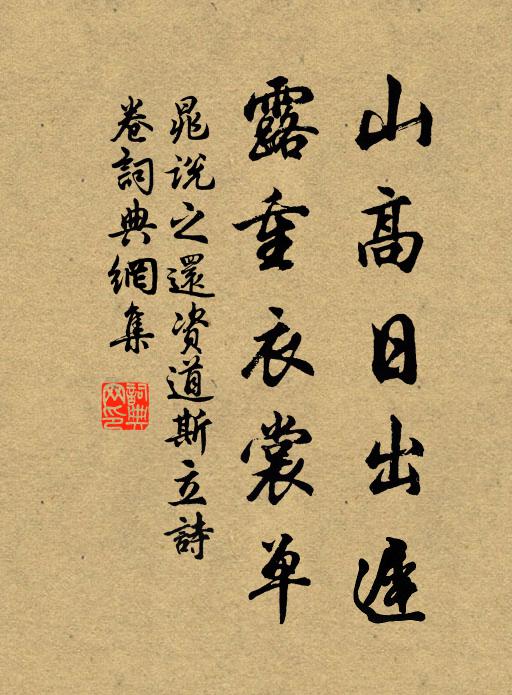 山高日出遲
露重衣裳单
晁说之還资道斯立詩
卷詞典網集
詞典
网印